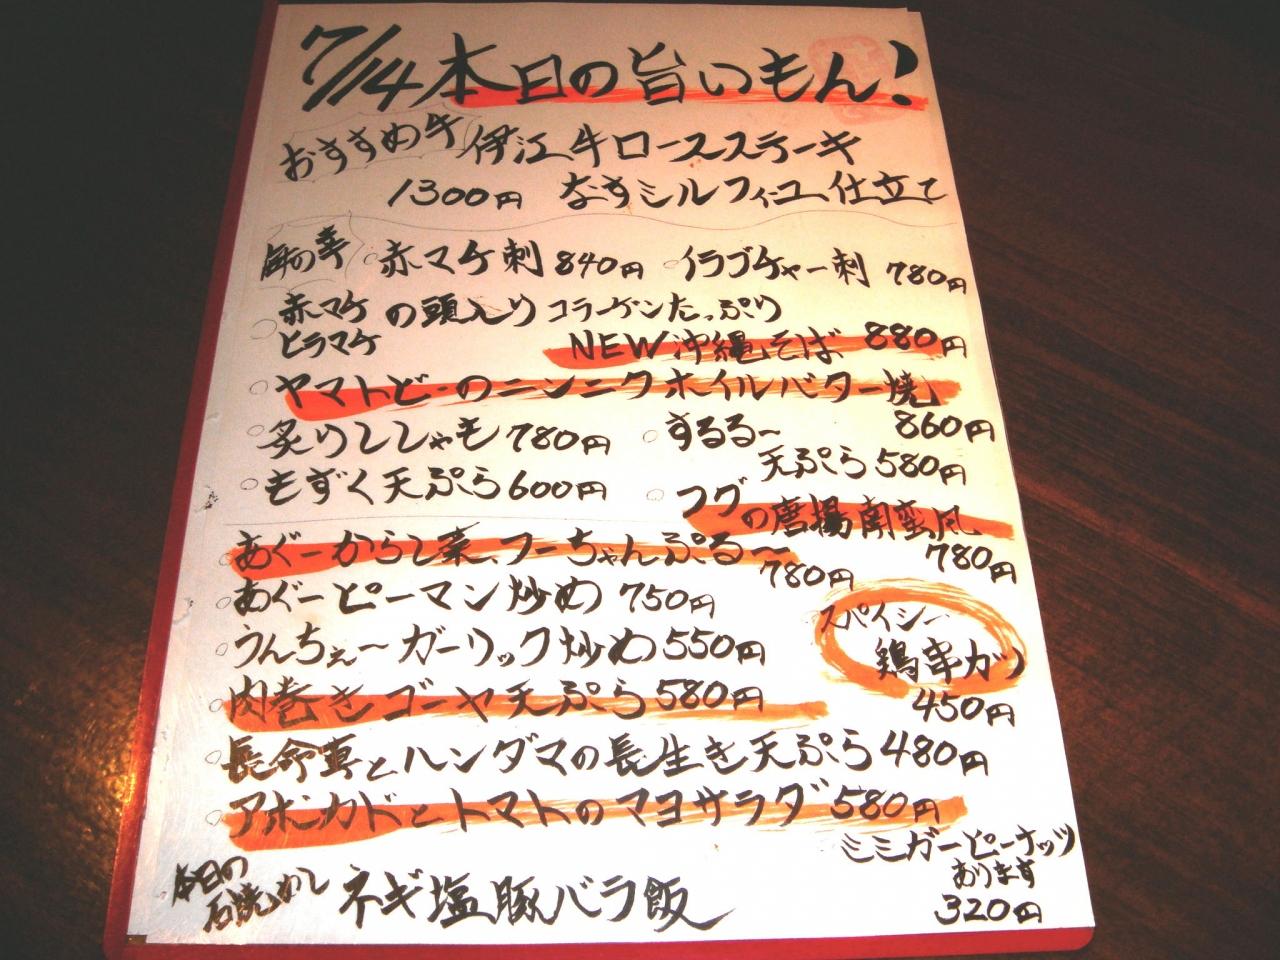 7/14 本日の旨いもん!
おすすめ牛 伊江牛ロースステーキ
1300円 なすミルフィーユ仕立て
海の幸 赤マケ刺 840円 イラブチャー刺 780円
赤マケ の頭入り コラーゲンたっぷり
ヒラマケ NEW沖縄そば 880円
ヤマトどーのニンニクホイルバター焼
860円
炙りししゃも 780円 するる〜
天ぷら 580円
もずく天ぷら 600円 フグ
の唐揚南蛮風
780円
あぐーからし菜、フーちゃんぷる〜
780円
あぐーピーマン炒め 750円
うんちぇ〜ガーリック炒め 550円
スパイシー
鶏串カツ
450円
肉巻きゴーヤ天ぷら 580円
長命草とハンダマの長生き天ぷら 480円
アボカドとトマトのマヨサラダ 580円
ミミガーピーナッツ
あります
320円
本日の
石焼めし ネギ塩豚バラ飯